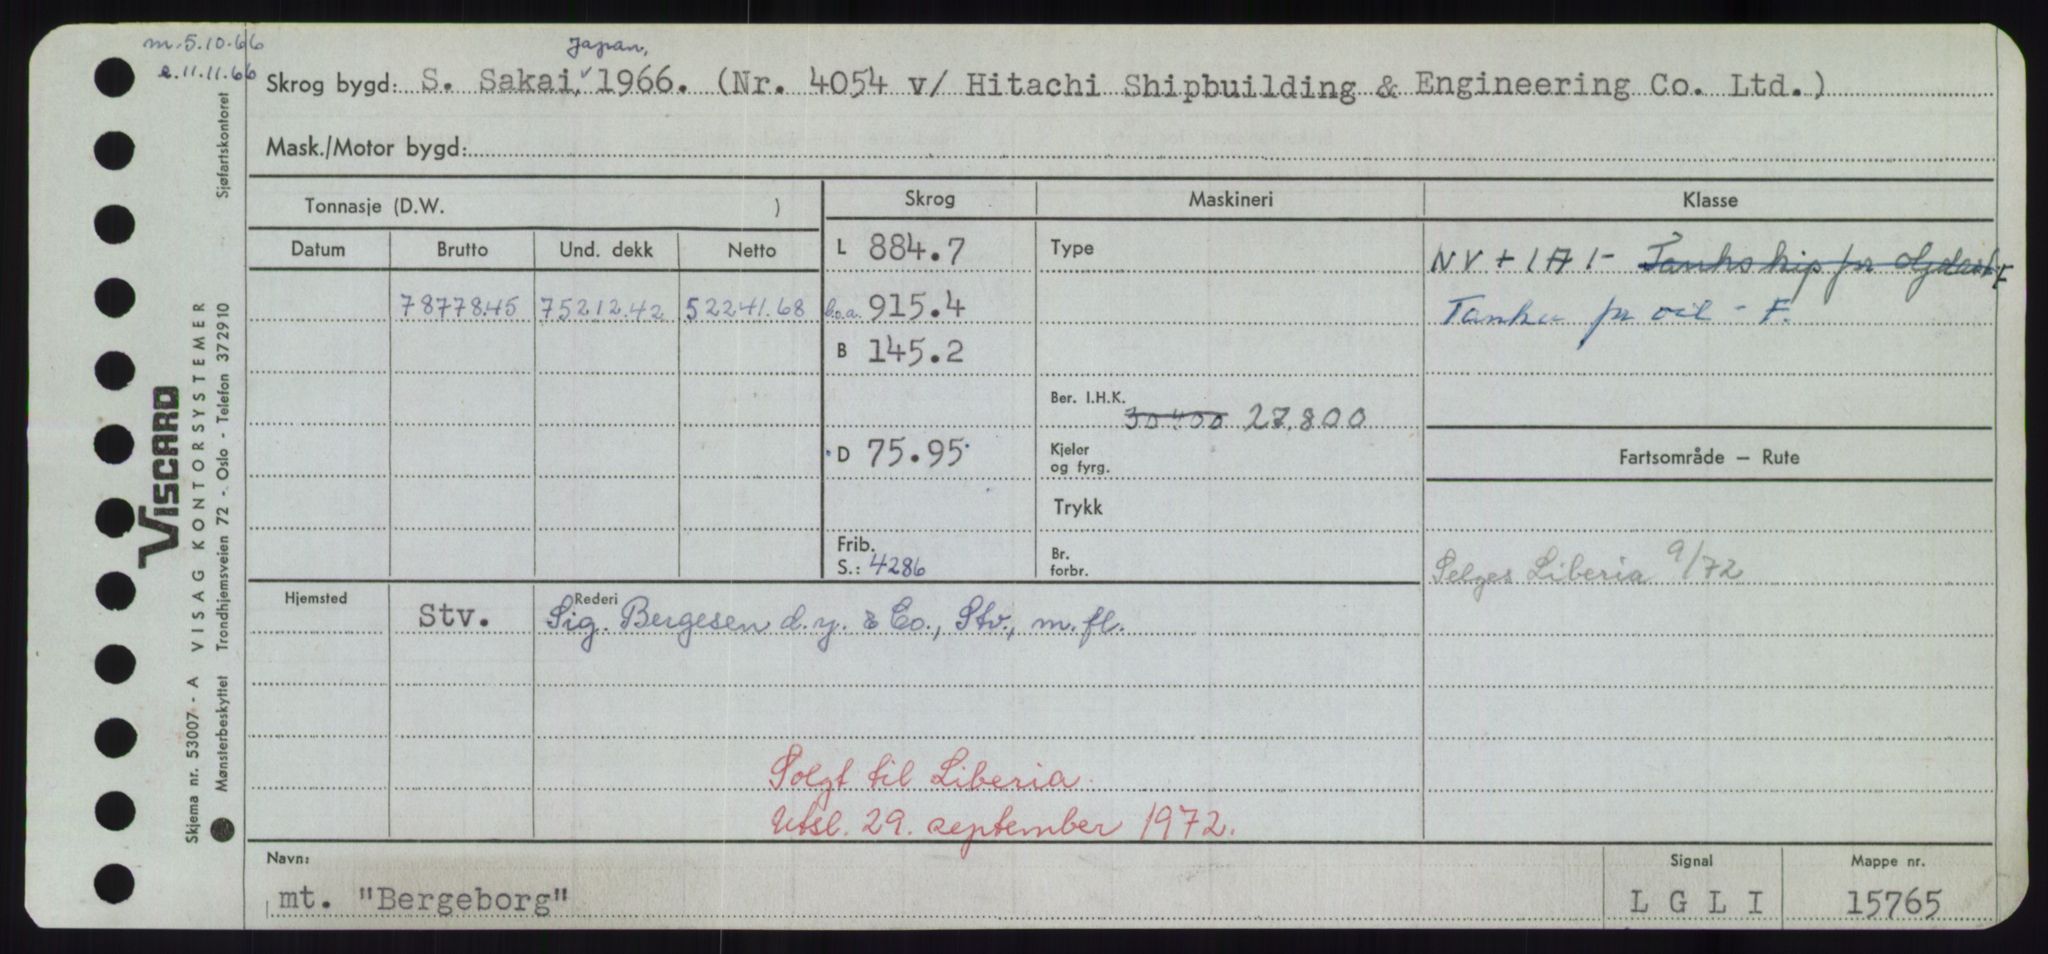 m. 5.10.66
e. 11.11.66
Japan,
Skrog bygd: S. Sakai, 1966. (Nr. 4054 v/ Hitachi Shipbuilding & Engineering Co. Ltd.)
Mask./Motor bygd:
Tonnasje (D.W. )
Skrog
Maskineri
Klasse
Datum
Brutto
Und. dekk
Netto
L 884.7
Type
NV + 1A1- Tankship for oljelast F
78778.45 75212.42 52241.68
l.o.a. 915.4
Tanker for oil - F.
B 145.2
Ber. I.H.K.
30400 27.800
D 75.95
Kjeler
og fyrg.
Fartsområde — Rute
Trykk
Frib.
S.: 4286
Br.
forbr.
Selges Liberia 9/72
Hjemsted
Stv.
Rederi
Sig. Bergesen d.y. & Co., Stv., m. fl.
Solgt til Liberia.
Utsl. 29. september 1972.
Navn:
mt. "Bergeborg"
Signal
L G L I
Mappe nr.
15765
VISCARD
Skjema nr. 53007 - A VISAG KONTORSYSTEMER
Mønsterbeskyttet Trondhjemsveien 72 - Oslo - Telefon 372910 Sjøfartskontoret